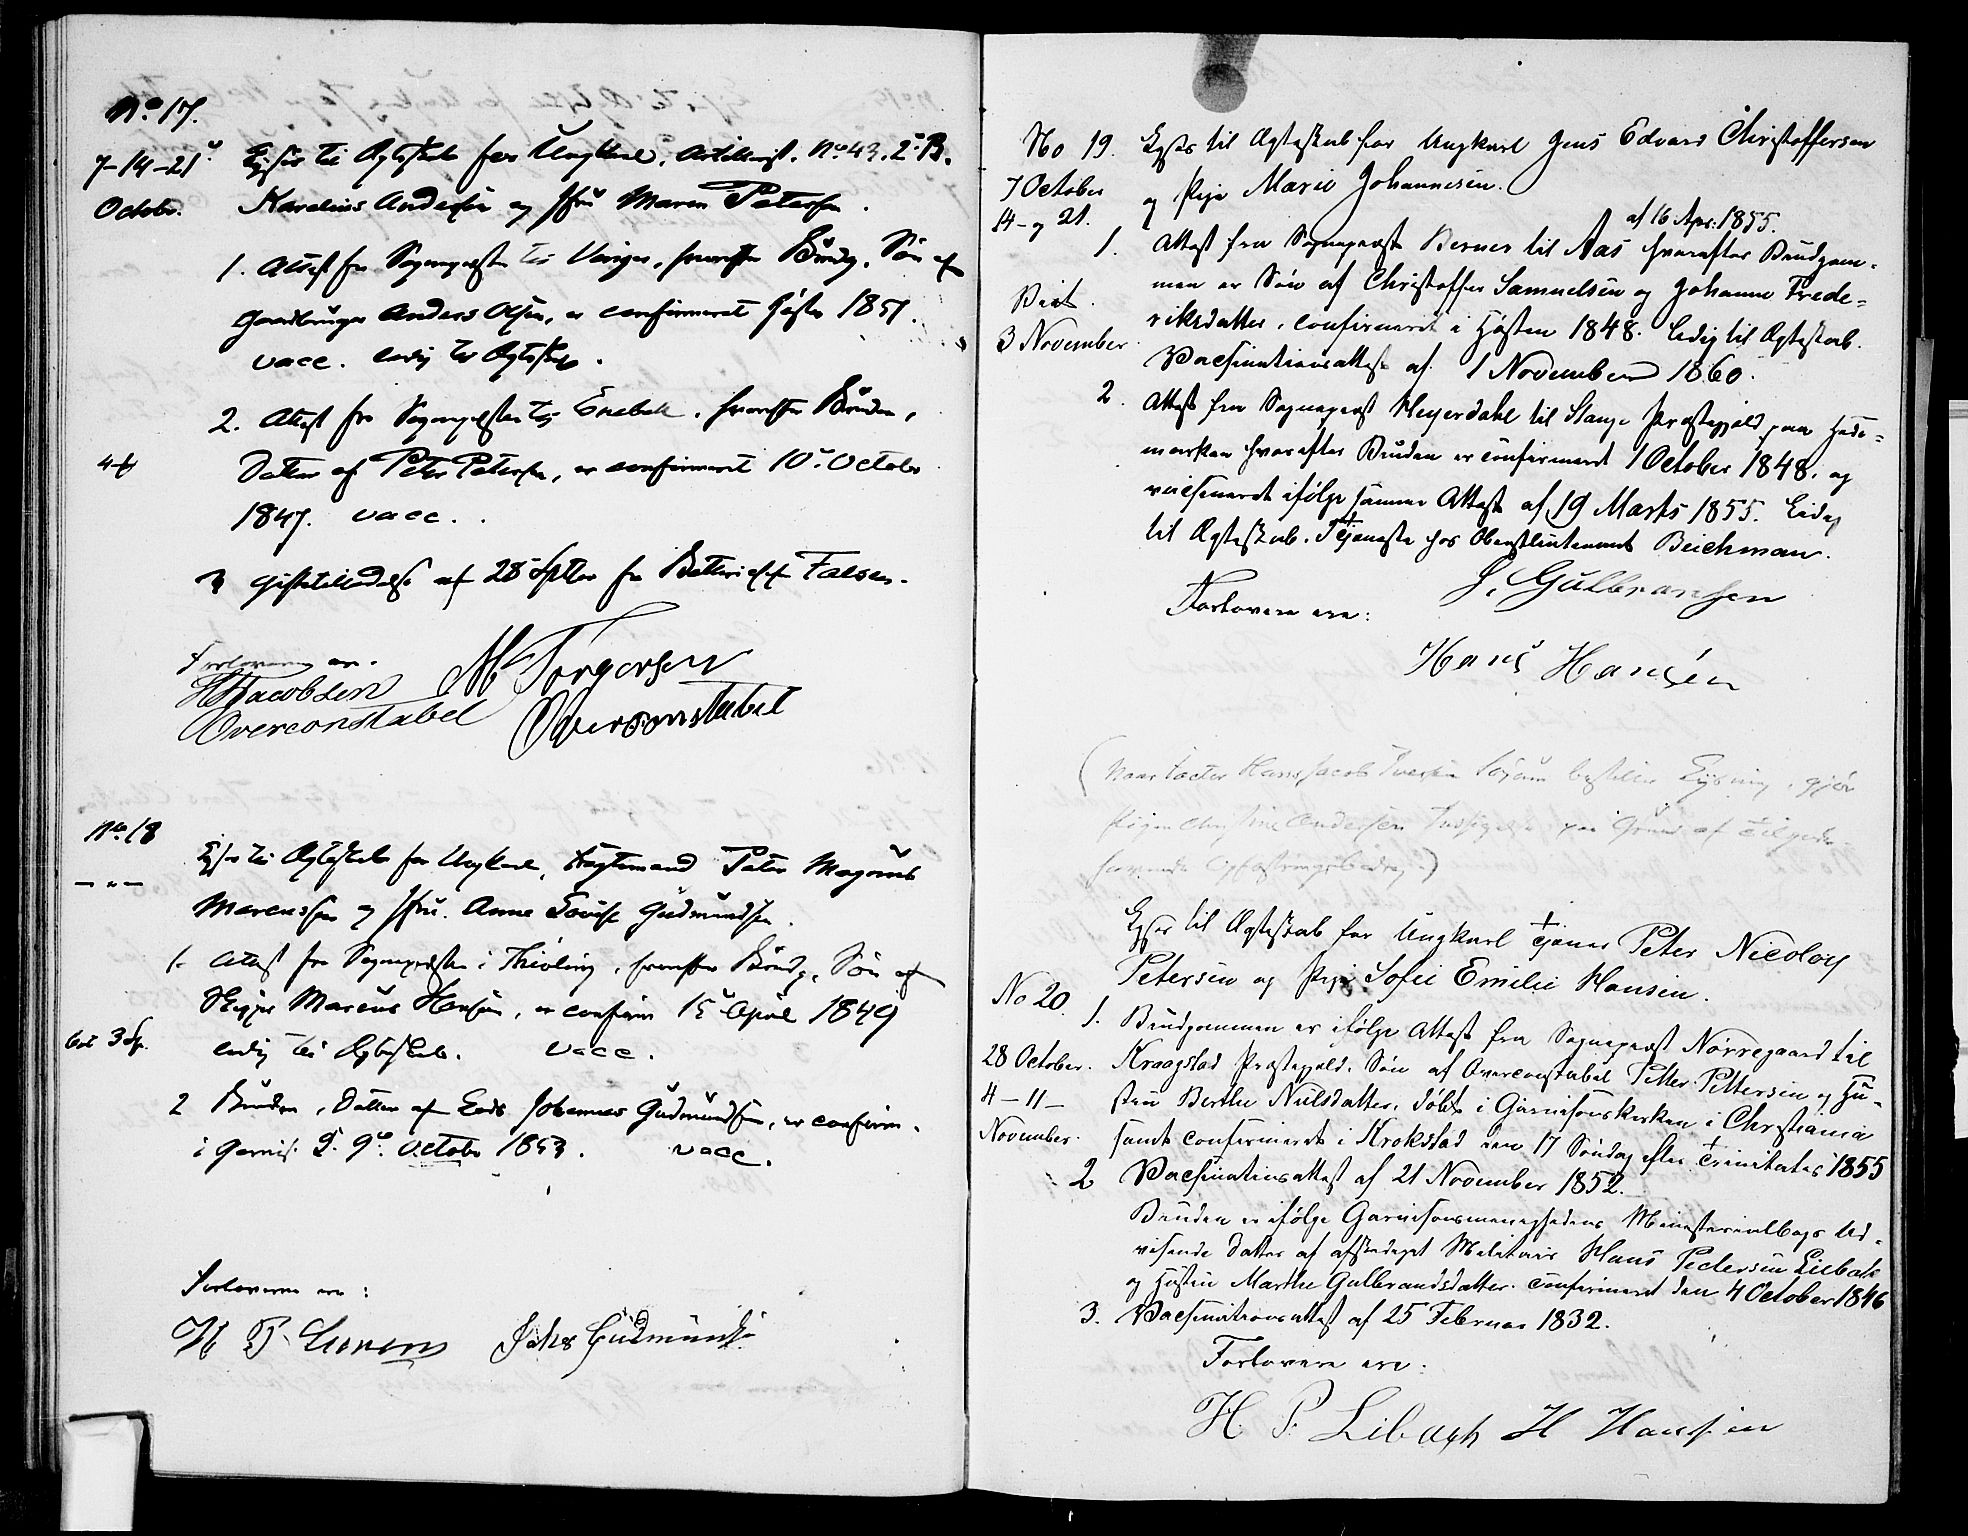 No 17.
7-14-21
Octobr.
Lyses til Ægteskab for Ungkarl, Artillerist. No 43. 2. B.
Karelius Andersen og Maren Petersen.
1. Attest fra Sognepræsten til, hvorefter Brudg. Søn af
Gaardbruger Anders Olsen, er confirmeret Høsten 1851.
vacc. ledig til Ægteskab.
2. Attest fra Sognepræsten til Enebak, hvorefter Bruden,
Datter af Peter Petersen, er confirmeret 10 October
1847. vacc.
3 Giftetilladelse af 28 Septbr fra Falsen.
Forloverne ere.
H Jacobsen M Torgersen
Overconstabel Overconstabel
No 18
- " -
Lyses til Ægteskab for Ungkarl, Peter Magnus
Marcussen og Anne Lovise Gudmundsen.
1. Attest fra Sognepræsten i, hvorefter Brudg. Søn af
Skipper Marcus Hansen, er confirm 15 April 1849
ledig til Ægteskab. vacc.
bet 3 Sp.
2 Bruden, Datter af Johannes Gudmundsen, er confirm.
i Garnis: d. 9 October 1853. vacc.
Forloverne ere:
H P Johs Gudmundsen
No 19.
7 October
14 - og 21.
Lyses til Ægteskab for Ungkarl Jens Edvard Christoffersen
og Pige Marie Johannesen.
af 16 Apr. 1855.
1. Attest fra Sognepræst Berner til Aas hvorefter Brudgom-
men er Søn af Christoffer Samuelsen og Johanne Frede-
riksdatter, confirmeret i Høsten 1848. ledig til Ægteskab.
Viet
3 November
Vaccinationsattest af 1 November 1860.
2. Attest fra Sognepræst Heyerdahl til Stange Præstegjeld paa Hede-
marken hvorefter Bruden er confirmeret 1 October 1848. og
vaccineret ifølge samme Attest af 19 Marts 1855. Ledig
til Ægteskab. Tjeneste hos Oberstlieutenant Beichman.
Forlovere ere:
J. Gulbransen
Hans Hansen
(Naar Hans Jacob Iversen bestiller Lysning, gjør
Pigen Christine Andersen Indsigelse paa Grund af
Opfostringsbidrag.)
No 20.
28 October.
4 - 11 -
November.
Lyses til Ægteskab for Ungkarl Tjener Peter Nicolay
Petersen og Pige Sofie Emilie Hansen.
1. Brudgommen er ifølge Attest fra Sognepræst Nørregaard til
Kraagstad Præstegjeld, Søn af Overconstabel Petter Pettersen og Hu-
stru Berthe Nilsdatter, døbt i Garnisonskirken i Christiania
samt confirmeret i Krokstad den 17 Søndag efter Trinitatis 1855
2 Vaccinationsattest af 21 November 1852.
Bruden er ifølge Garnisonsmenighedens Ministerialbogs Ud-
visende Datter af afskediget Militair Hans Pedersen Liebak
og Hustru Marthe Gulbrandsdatter. confirmeret den 4 October 1846
3. Vaccinationsattest af 25 Februar 1832.
Forlovere ere:
H. P. Libagh H Hansen